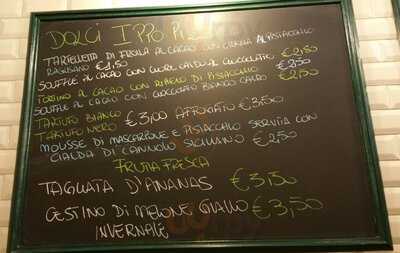 DOLCI IPPO
TARTELLETTA DI FROLLA AL CACAO CON CREMA AL PISTACCHIO
RAGUSANO €1,50
SOUFFLE AL CACAO CON CUORE CALDO AL CIOCCOLATO €2,50
TORTINO AL CACAO CON RIPIENO DI PISTACCHIO €2,50
SOUFFLE AL CACAO CON CIOCCOLATO BIANCO CALDO €2,50
TARTUFO BIANCO
TARTUFO NERO €3,00 AFFOGATO €3,50
MOUSSE DI MASCARPONE E PISTACCHIO SERVITA CON
CIALDA DI CANNOLO SICILIANO €2,50
FRUTTA FRESCA
TAGLIATA D'ANANAS €3,50
CESTINO DI MELONE GIALLO €3,50
INVERNALE